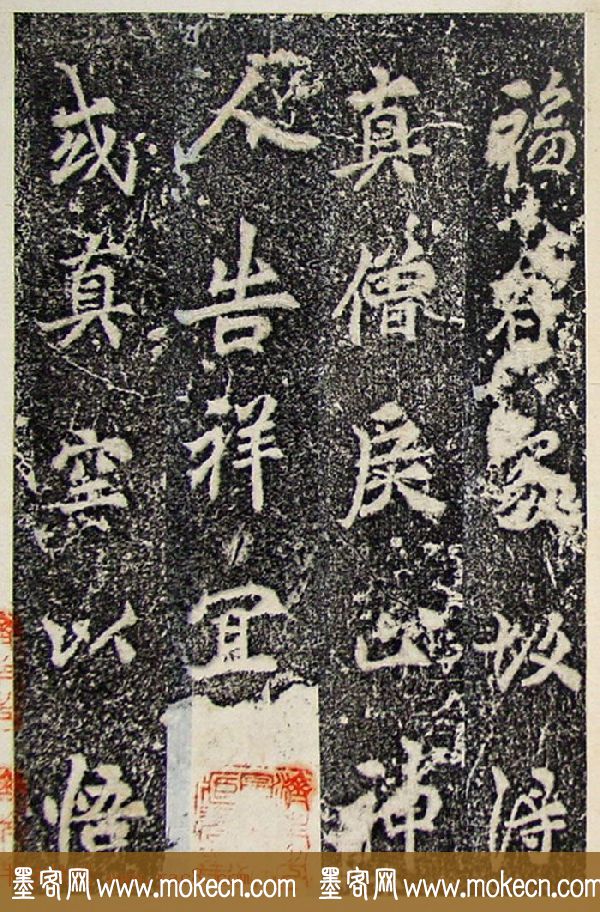 福故得
真僧戾止神
人告祥宜
或真空以悟
墨客网 www.mokecn.com 墨客网 www.mokecn.com